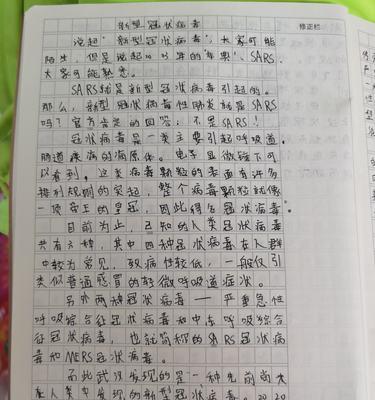 新型冠状病毒
修正栏
说起"新型冠状病毒",大家可能
陌生,但是说起2003年的 SARS,
大家可能熟悉。
SARS就是新型冠状病毒引起的。
那么,新型冠状病毒性肺炎就是SARS
吗?官方肯定的回答:不是SARS!
冠状病毒是一类主要引起呼吸道、
肠道疾病的病原体。电子显微镜下可
以看到,这类病毒颗粒的表面有许多
排列规则的突起,整个病毒颗粒就像
一顶帝王的皇冠,因此得名冠状病毒。
目前为止,已知的人类冠状病毒
共有六种,其中四种冠状病毒在人群
中较为常见,致病性较低,一般仅引
类似普通感冒的轻微呼吸道症状。
另外两种冠状病毒——严重急性
呼吸综合征冠状病毒和中东呼吸综合
征冠状病毒,也就简称的SARS冠状病
毒和MERS冠状病毒。
而此武汉发现的是一种先前尚未
在人类中发现的新型冠状病毒。2020